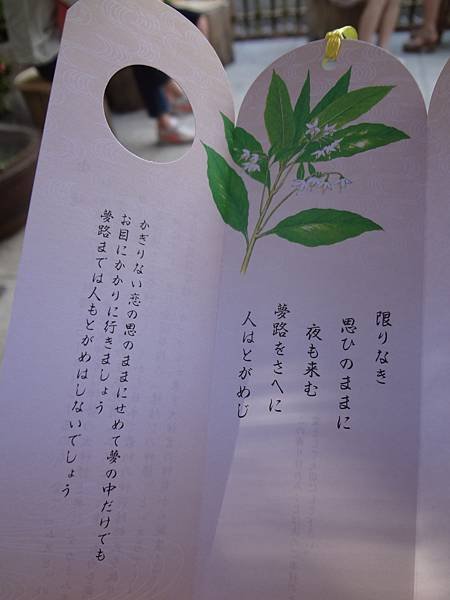 限りなき
思ひのままに
夜も来む
夢路をさへに
人はとがめじ
かぎりない恋の思のままにせめて夢の中だけでも
お目にかかりに行きましょう
夢路までは人もとがめはしないでしょう